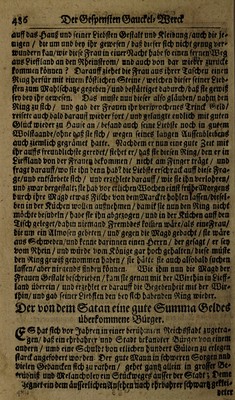 486 Der Gespensten Gauckel-Werck
auff das Hauß und seiner Liebsten Gestalt und Kleidung/ auch die sei-
nigen / die um und bey ihr gewesen / daß dieser sich nicht genug ver-
wundern kan/ wie diese Frau in einer Nacht habe so einen fernen Weg
aus Lieffland an den Rheinstrom/ und auch von dar wieder zurücke
kommen können ? Darauf ziehet die Frau aus ihrer Taschen einen
Ring herfür mit einem köstlichen Steine / welchen dieser seiner Lieb-
sten zum Mahlschatz gegeben / und bestättiget dadurch / daß sie gewiß
bey ihr gewesen. Das muste nun dieser also glauben / nahm den
Ring zu sich / und gab der Frauen ihr versprochenes Trinck-Geld/
reiset auch bald darauf wieder fort / und gelanget endlich mit guten
Glück wieder zu Haus an / befand auch seine Liebste noch in gutem
Wolstande / ohne daß sie sich / wegen seines langen Aussenbleibens
auch ziemlich gegrämet hatte. Nachdem er nun eine gute Zeit mit
ihr auffs freundlichste geredet / siehet er diesen Ring / den er in
Lieffland von der Frauen bekommen / nicht am Finger trägt / und
fragt darauf/ wo sie ihn denn hab? die Liebste erschrickt auff diese Fra-
ge/ und entfärbete sich / und erzehlet darauf / wie sie ihn verlohren/
und zwar dergestalt: sie hab vor etlichen Wochen einst frühe Morgens
durch ihre Magd etwas Fische von dem Marckt holen lassen/ diesel-
ben in der Küchen wollen aufmachen / damit sie nun den Ring nicht
möchte besudeln / habe ihn abgezogen / und in der Küchen auff den
Tisch geleget / da wäre
um ein Allmosen gebeten / und
aus Schweden/ und kenne darinnen einen Herrn / der
vom Rhein / und würde vom Könige gar hoch gehalten/ diese müste
den Ring gewiß genommen haben / sie hätte sie auch alsobald suchen
lassen/ aber nirgends finden können. Wie ihm nun die Magd der
Frauen Gestalt beschrieben / kam sie genau mit der Wirthin in Lieff-
land überein / und erzehlet er darauf die Begebenheit mit der Wir-
thin / und gab seiner Liebsten den bey sich habenden Ring wieder.
Der von dem Satan eine gute Summa Geldes
überkommene Bürger.
ES hat sich vor Jahren in einer berühmten Reichsstadt zugetra-
gen/ daß ein ehrbahrer und Stadt-kündiger Bürger von einem
andern / um eine Schuld von etlichen hundert Gülden zu erlegen
starck angefodert worden. Der gute Mann in schweren Sorgen und
vielen Gedancken sich zu rathen / gehet gantz allein in grosser Be-
trübniß und Melancholie ein Stückweges ausser der Stadt. Deme
begegnet ein dem äusserlichen Ansehen nach ehrbahrer schwartz geklei-
deter